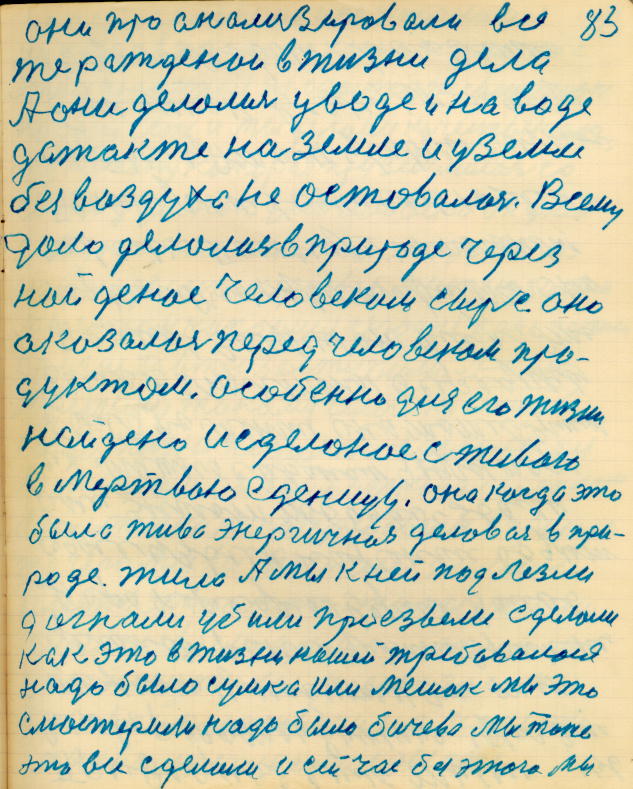 они про анализировали все 83
те ражденои в жизни дела
А они делолия у воде и на воде
да также на земле и у земли
без воздуха не оставалоя. Всему
дало делолия в природе через
най деное человеком сырс. оно
оказалоя перед человеком про-
дуктом. особенно для его жизни
найдено и сделоное с живого
в мертваю еденицу. она когда это
была жива энергичноя деловая в при-
роде. жила А мы к ней подлезли
догнали убили произвели сделали
как это в жизни нашей требавалося
надо было сумка или мешок мы это
смостерили надо было бичева мы тоже
это все сделали и сей час без этого мы